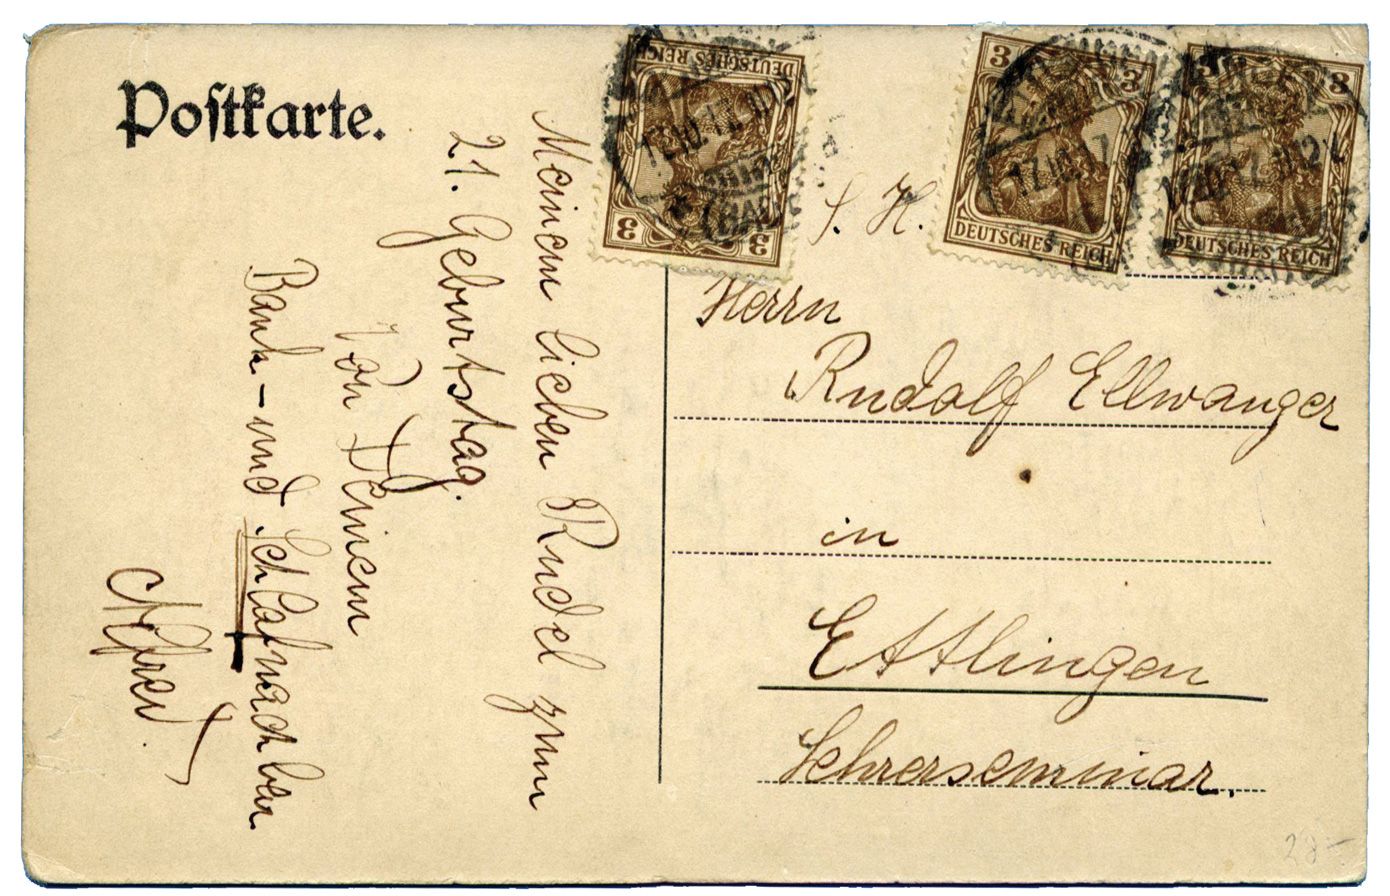 Postkarte.
Meinem lieben Rudel zum
21. Geburtstag.
Von Deinem
Bank- und Schlafnachbar
Alfred.
DEUTSCHES REICH
3 3
3 3
DEUTSCHES REICH
3 3
DEUTSCHES REICH
S. H.
Herrn
Rudolf Ellwanger
in
Ettlingen
Lehrerseminar.
28-